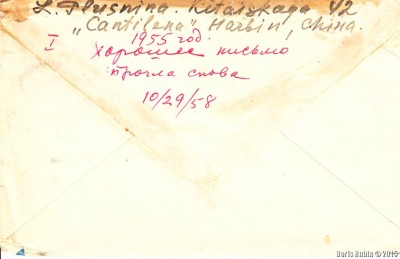 L. Plusnina. Kitaiskaga 42
„Cantilena” Harbin, China.
1955 год.
I хорошее письмо
прочла снова
10/29/58
Boris Rubin © 2015